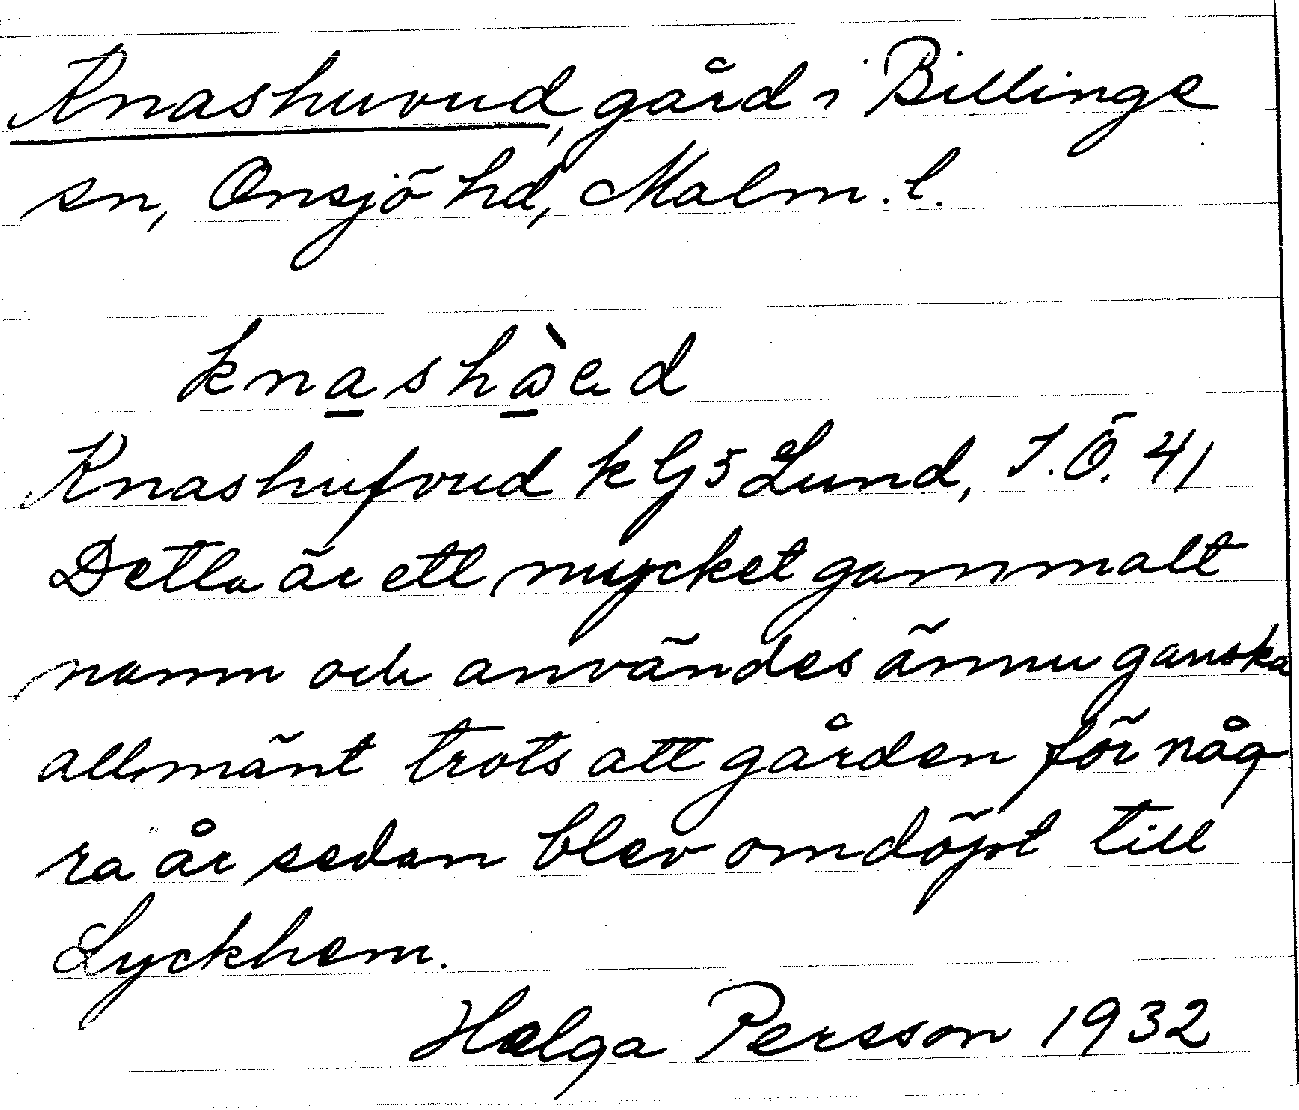 Knashuvud, gård i Billinge
sn, Onsjö hd, Malm. l.
knashàed
Knashufvud k G5 Lund, J.Ö. 41
Detta är ett mycket gammalt
namn och användes ännu ganska
allmänt trots att gården för någ
ra år sedan blev omdöpt till
Lyckhem.
Helga Persson 1932